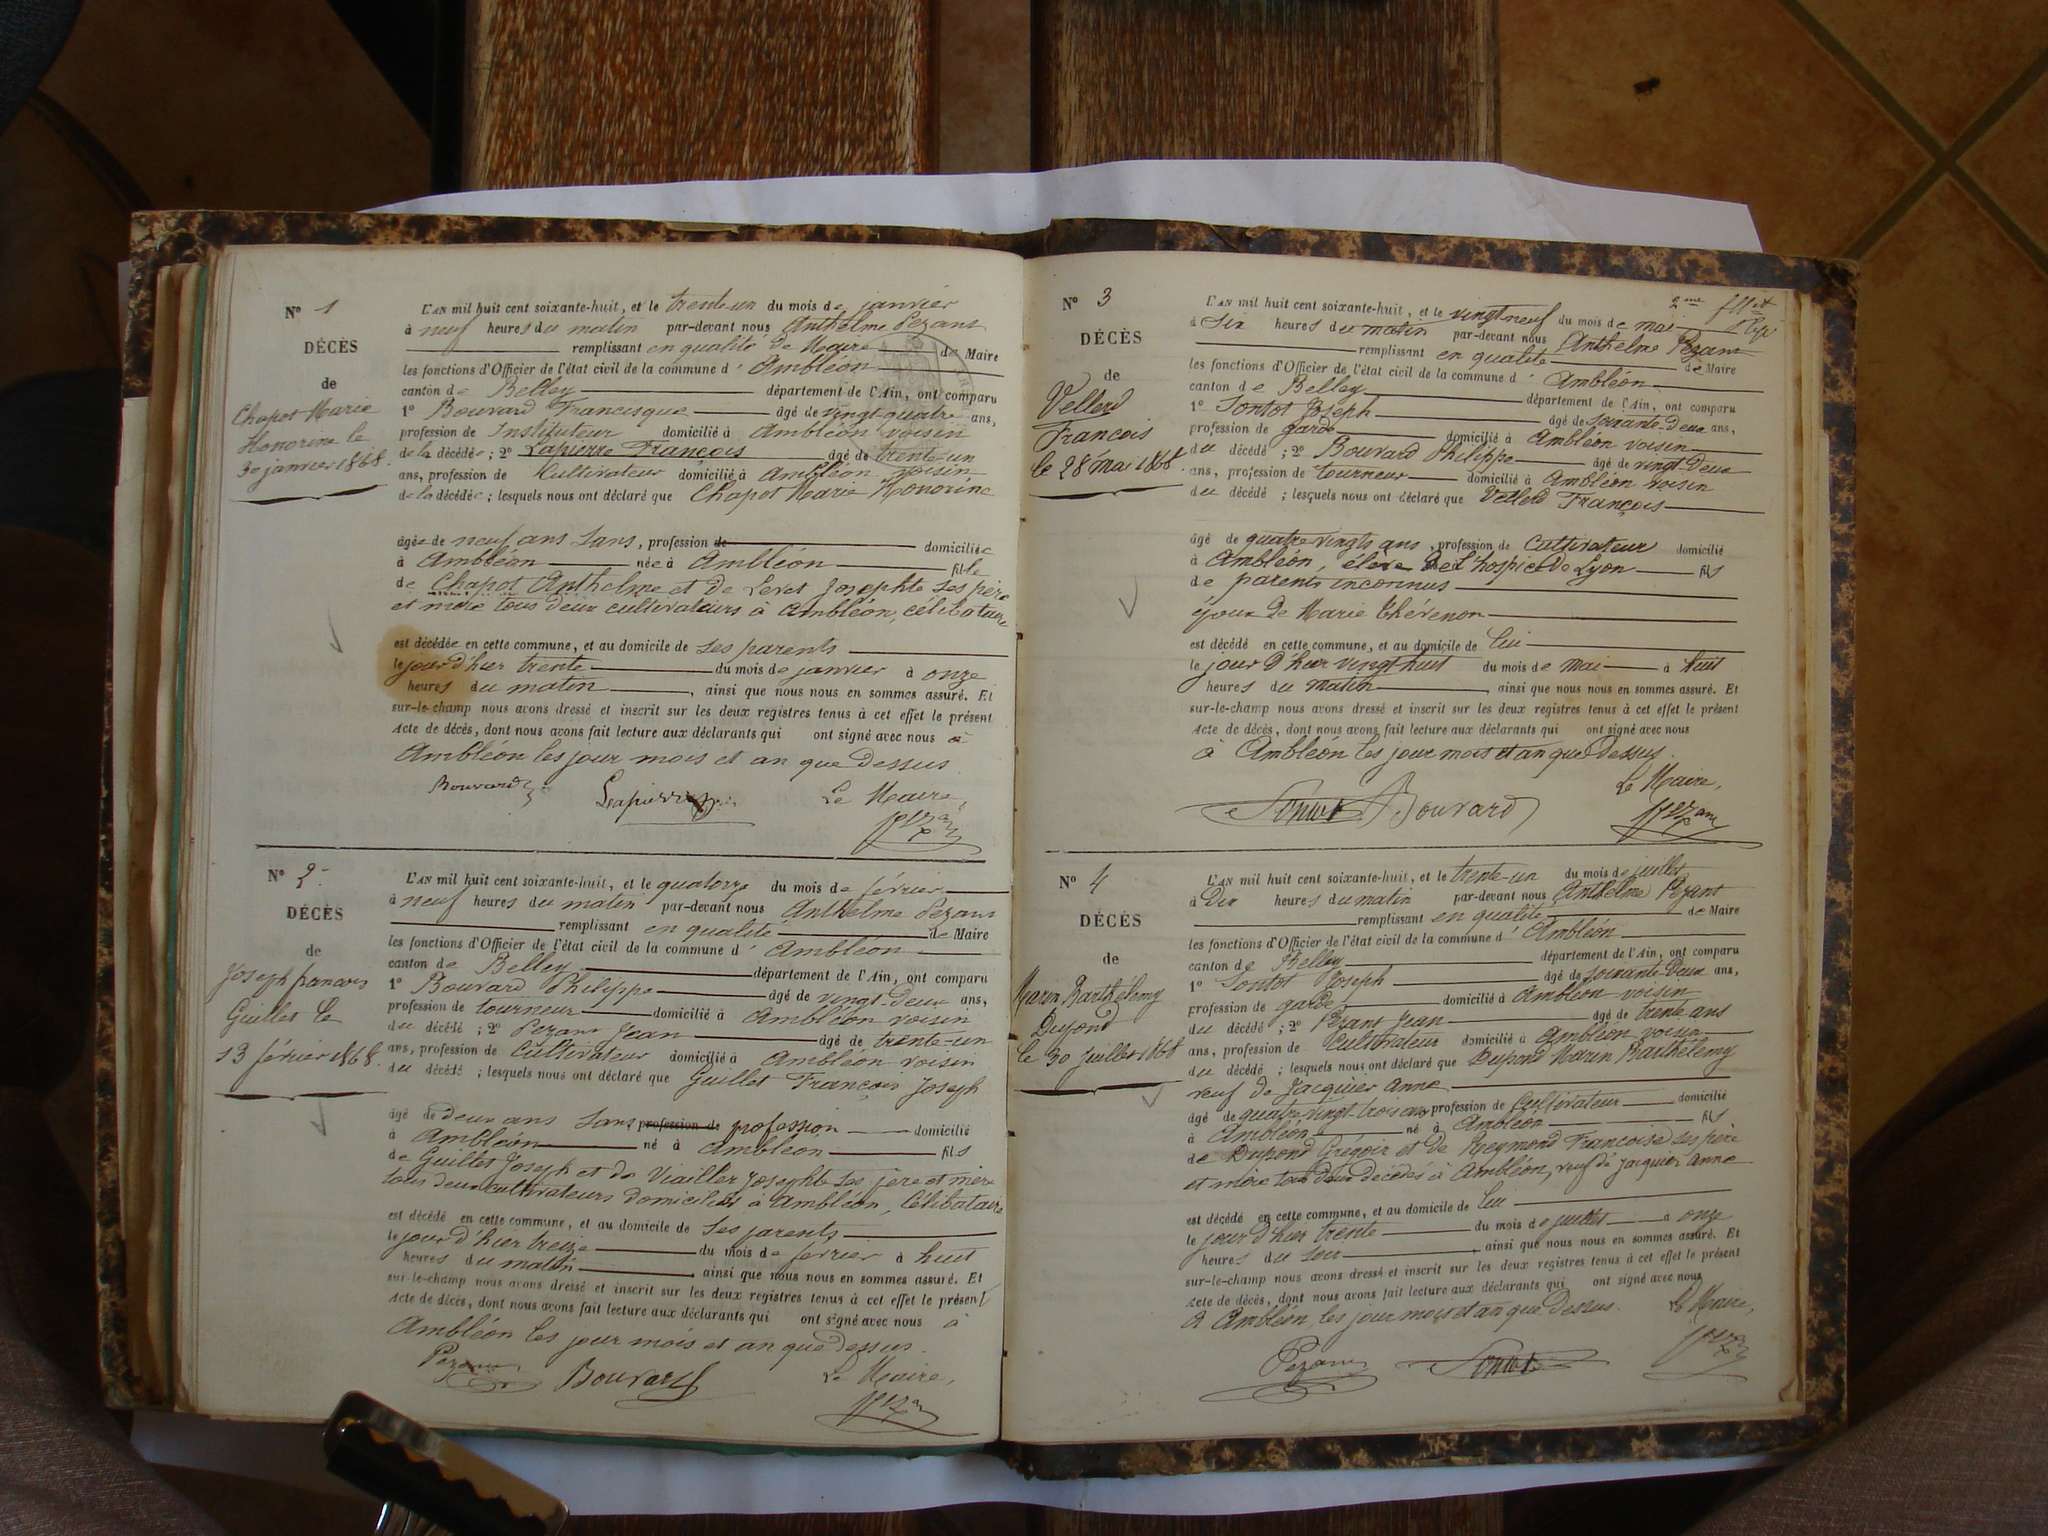 N° 1
DÉCÈS
de
Chapot Marie
Honorine le
30 janvier 1868.
L'AN mil huit cent soixante-huit, et le trente-un du mois de janvier
à neuf heures du matin par-devant nous Anthelme Pezant
remplissant en qualité de Maire de Maire
les fonctions d'Officier de l'état civil de la commune d' Ambléon
canton de Belley département de l'Ain, ont comparu
1° Bouvard Francisque âgé de vingt-quatre ans,
profession de Instituteur domicilié à Ambléon voisin
de la décédée ; 2° Lapierre François âgé de trente-un
ans, profession de Cultivateur domicilié à Ambléon voisin
de la décédée ; lesquels nous ont déclaré que Chapot Marie Honorine
âgée de neuf ans sans, profession de domiciliée
à Ambléon née à Ambléon fille
de Chapot Anthelme et de Levet Josephte ses père
et mère tous deux cultivateurs à Ambléon, célibataire
est décédée en cette commune, et au domicile de ses parents
le jour d'hier trente du mois de janvier à onze
heures du matin, ainsi que nous nous en sommes assuré. Et
sur-le-champ nous avons dressé et inscrit sur les deux registres tenus à cet effet le présent
acte de décès, dont nous avons fait lecture aux déclarants qui ont signé avec nous à
Ambléon les jour mois et an que dessus
Bouvard Lapierre Le Maire,
Pezant
N° 2
DÉCÈS
de
Joseph francois
Guillet le
13 février 1868.
L'AN mil huit cent soixante-huit, et le quatorze du mois de février
à neuf heures du matin par-devant nous Anthelme Pezant
remplissant en qualité de Maire
les fonctions d'Officier de l'état civil de la commune d' Ambléon
canton de Belley département de l'Ain, ont comparu
1° Bouvard Philippe âgé de vingt-deux ans,
profession de tourneur domicilié à Ambléon voisin
du décédé ; 2° Pezant Jean âgé de trente-un
ans, profession de Cultivateur domicilié à Ambléon voisin
du décédé ; lesquels nous ont déclaré que Guillet François Joseph
âgé de deux ans sans profession de profession domicilié
à Ambléon né à Ambléon fils
de Guillet Joseph et de Viallier Josephte ses père et mère
tous deux cultivateurs domiciliés à Ambléon, Célibataire
est décédé en cette commune, et au domicile de ses parents
le jour d'hier treize du mois de février à huit
heures du matin, ainsi que nous nous en sommes assuré. Et
sur-le-champ nous avons dressé et inscrit sur les deux registres tenus à cet effet le présent
acte de décès, dont nous avons fait lecture aux déclarants qui ont signé avec nous à
Ambléon les jour mois et an que dessus.
Pezant Bouvard Le Maire,
Pezant
2me
N° 3
DÉCÈS
de
Vellerd
François
le 28 mai 1868.
L'AN mil huit cent soixante-huit, et le vingt neuf du mois de mai
à six heures du matin par-devant nous Anthelme Pezant
remplissant en qualité de Maire
les fonctions d'Officier de l'état civil de la commune d' Ambléon
canton de Belley département de l'Ain, ont comparu
1° Sontot Joseph âgé de soixante-deux ans,
profession de garde domicilié à Ambléon voisin
du décédé ; 2° Bouvard Philippe âgé de vingt-deux
ans, profession de tourneur domicilié à Ambléon voisin
du décédé ; lesquels nous ont déclaré que Vellerd François
âgé de quatre vingts ans, profession de Cultivateur domicilié
à Ambléon, élève de l'hospice de Lyon fils
de parents inconnus
époux de Marie Thévenon
est décédé en cette commune, et au domicile de lui
le jour d'hier vingt huit du mois de mai à huit
heures du matin, ainsi que nous nous en sommes assuré. Et
sur-le-champ nous avons dressé et inscrit sur les deux registres tenus à cet effet le présent
acte de décès, dont nous avons fait lecture aux déclarants qui ont signé avec nous
à Ambléon les jour mois et an que dessus.
Le Maire,
Bouvard Pezant
N° 4
DÉCÈS
de
Marin Barthélemy
Dupond
le 30 juillet 1868
L'AN mil huit cent soixante-huit, et le trente-un du mois de juillet
à dix heures du matin par-devant nous Anthelme Pezant
remplissant en qualité de Maire
les fonctions d'Officier de l'état civil de la commune d' Ambléon
canton de Belley département de l'Ain, ont comparu
1° Sontot Joseph âgé de soixante-deux ans,
profession de garde domicilié à Ambléon voisin
du décédé ; 2° Pezant Jean âgé de trente ans
ans, profession de Cultivateur domicilié à Ambléon voisin
du décédé ; lesquels nous ont déclaré que Dupond Marin Barthélemy
veuf de Jacquier Anne
âgé de quatre vingt-trois ans profession de Cultivateur domicilié
à Ambléon né à Ambléon fils
de Dupond Grégoir et de Reymond Françoise ses père
et mère tous deux décédés à Ambléon, veuf de Jacquier Anne
est décédé en cette commune, et au domicile de lui
le jour d'hier trente du mois de juillet à onze
heures du soir, ainsi que nous nous en sommes assuré. Et
sur-le-champ nous avons dressé et inscrit sur les deux registres tenus à cet effet le présent
acte de décès, dont nous avons fait lecture aux déclarants qui ont signé avec nous
A Ambléon les jour mois et an que dessus. Le Maire,
Pezant Pezant